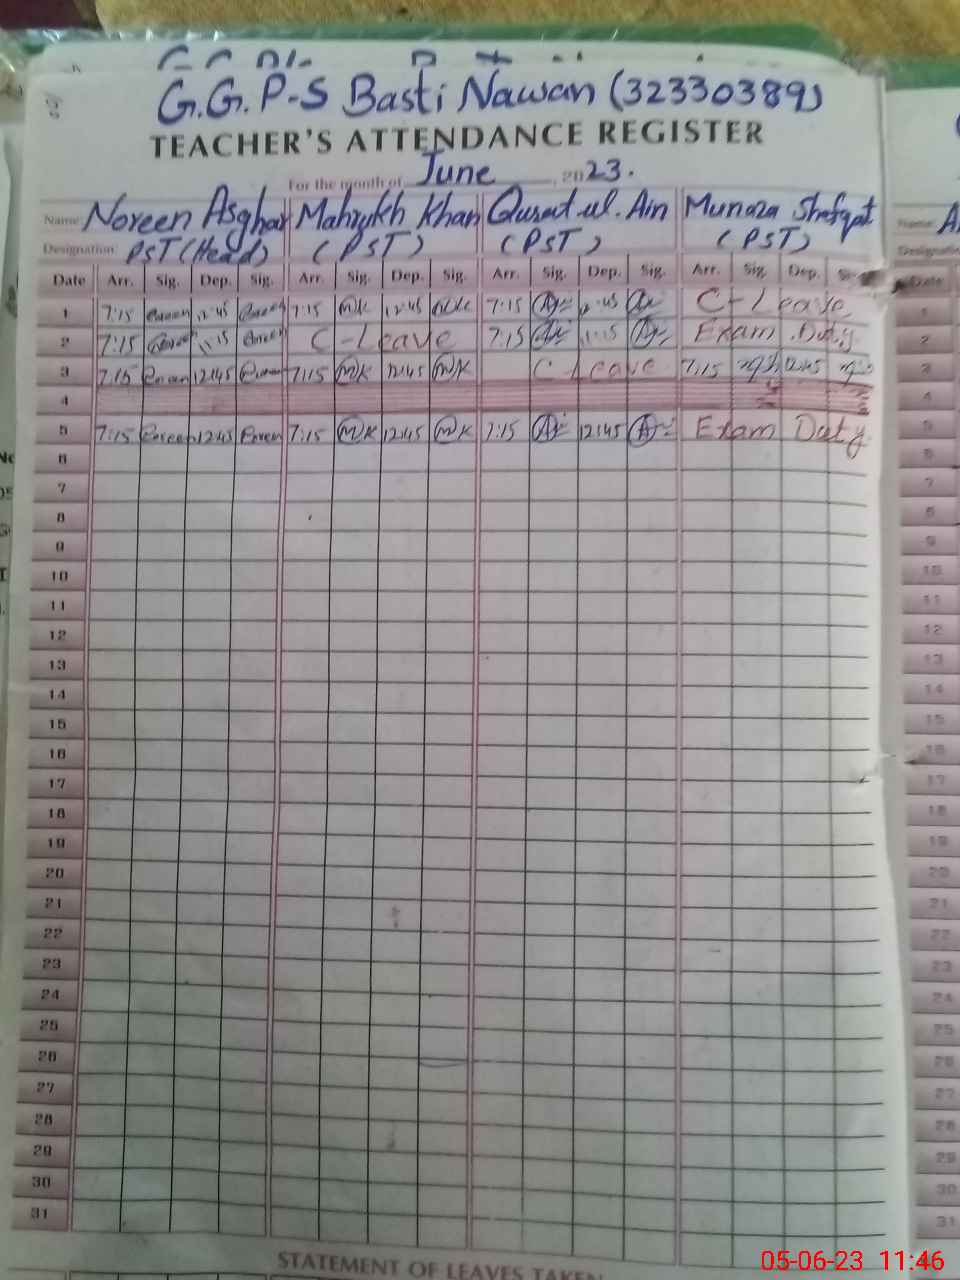 G.G.P-S Basti Nawan (32330389)
TEACHER'S ATTENDANCE REGISTER
For the month of June 2023.
Name: Noreen Asghar Mahrukh Khan Qurat ul. Ain Munaza Shafqat
Designation: PST (Head) (PST) (PST) (PST)
Date Arr. Sig. Dep. Sig. Arr. Sig. Dep. Sig. Arr. Sig. Dep. Sig. Arr. Sig. Dep.
1 7:15 12:45 7:15 MK 12:45 MK 7:15 12:45 C-Leave
2 7:15 11:15 C-Leave 7:15 11:15 Exam Duty
3 7:15 12:45 7:15 MK 12:45 MK C Leave 7:15 12:45
4
5 7:15 12:45 7:15 MK 12:45 MK 7:15 12:45 Exam Duty
6
7
8
9
10
11
12
13
14
15
16
17
18
19
20
21
22
23
24
25
26
27
28
29
30
31
STATEMENT OF LEAVES TAKEN
05-06-23 11:46